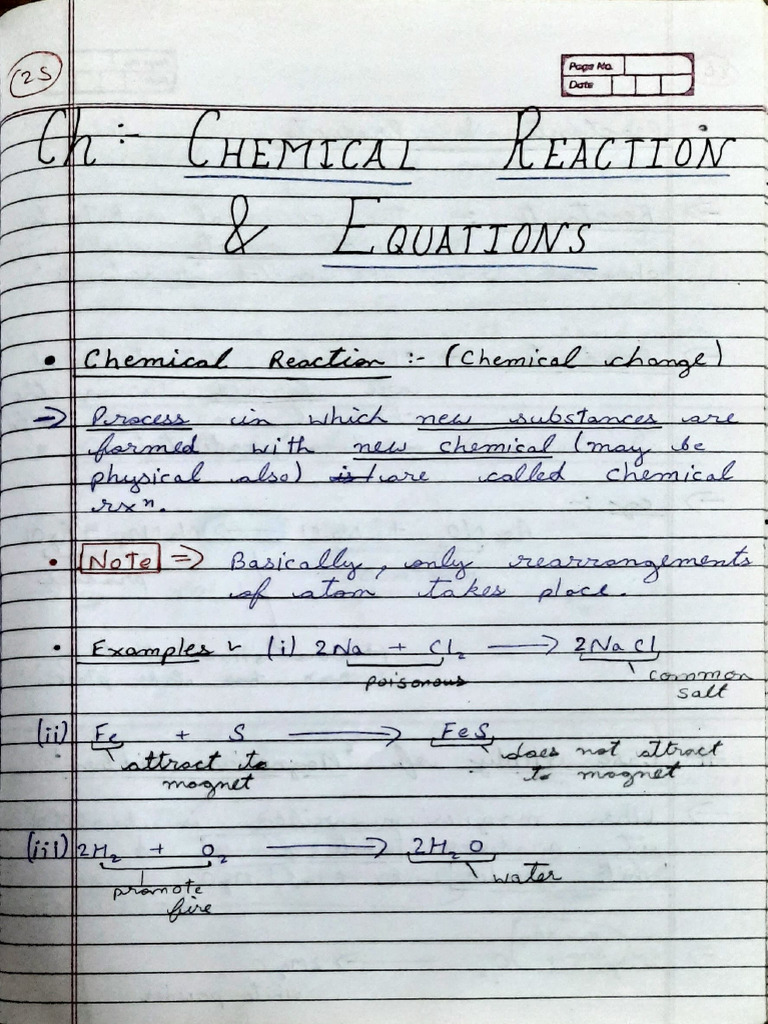 25
Page No.
Date
Ch :- CHEMICAL REACTION
& EQUATIONS
• Chemical Reaction :- (Chemical change)
⇒ Process in which new substances are
formed with new chemical (may be
physical also) is/are called chemical
rxⁿ.
• NoTe ⇒ Basically, only rearrangements
of atom takes place.
• Examples :- (i) 2Na + Cl₂ → 2NaCl
poisonous common
salt
(ii) Fe + S → FeS
attract to does not attract
magnet to magnet
(iii) 2H₂ + O₂ → 2H₂O
promote water
fire